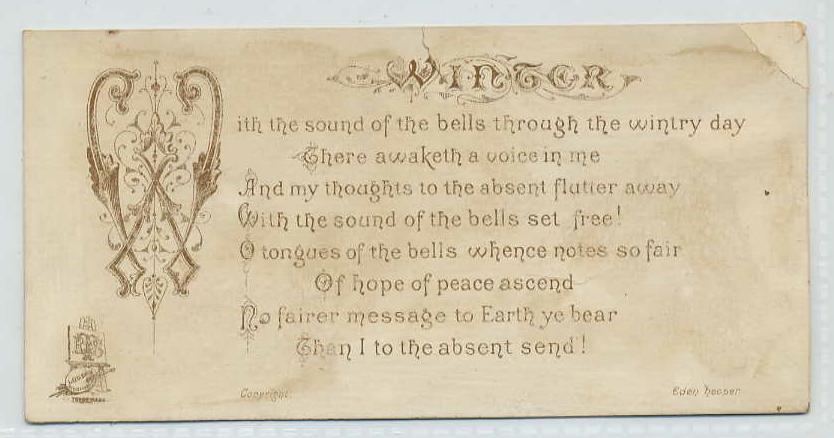 WINTER
With the sound of the bells through the wintry day
There awaketh a voice in me
And my thoughts to the absent flutter away
With the sound of the bells set free!
O tongues of the bells whence notes so fair
Of hope of peace ascend
No fairer message to Earth ye bear
Than I to the absent send!
Copyright.
Eden Hooper